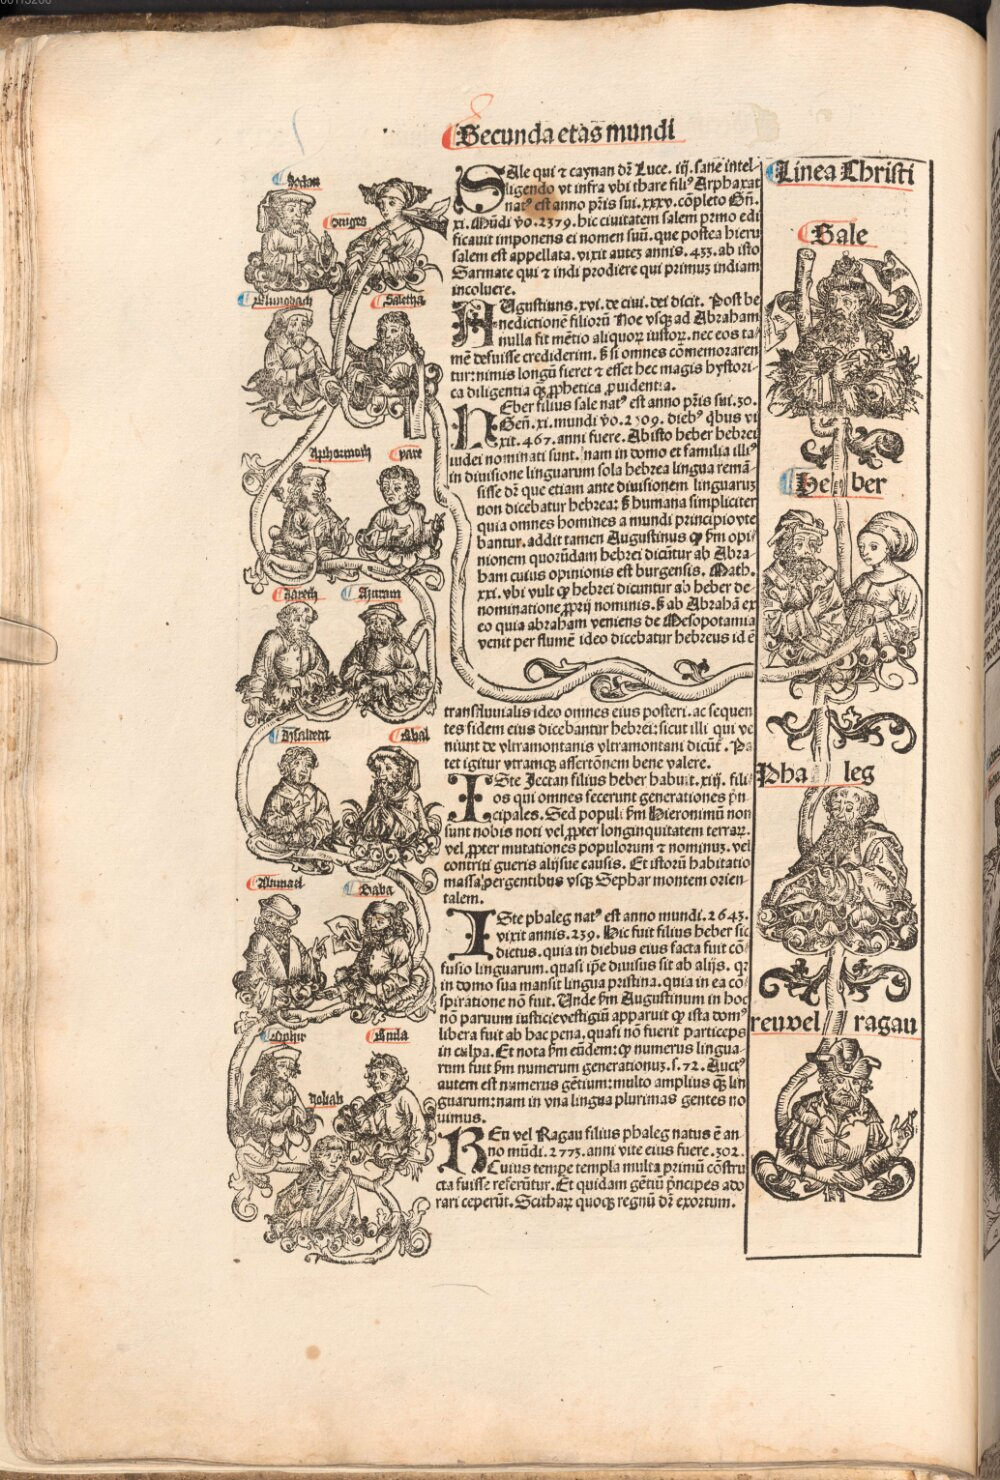 Secunda etas mundi
SAle qui ⁊ caynan dr̄ Luce. iij. sane intel-
ligendo vt infra vbi thare filiꝰ Arphaxat
natꝰ est anno pr̄is sui. xxxv. cōpleto Gn̄.
xi. Mūdi ṽo. 2379. hic ciuitatem salem primo edi
ficauit imponens ei nomen suū. que postea hieru
salem est appellata. vixit autez annis. 433. ab isto
Sarmate qui ⁊ indi prodiere qui primuz indiam
incoluere.
AUgustinus. xvi. de ciui. dei dicit. Post be
nedictionē filiorū Noe vsqꝫ ad Abraham
nulla fit mētio aliquoꝝ iustoꝝ. nec eos ta-
mē defuisse crediderim. ß si omnes cōmemoraren
tur: nimis longū fieret ⁊ esset hec magis hystori-
ca diligentia qꝫ ꝓphetica ꝓuidentia.
HEber filius sale natꝰ est anno pr̄is sui. 30.
Gen̄. xi. mundi ṽo. 2509. diebꝰ qbus vi
xit. 467. anni fuere. Ab isto heber hebrei
iudei nominati sunt. nam in domo et familia illiꝰ
in diuisione linguarum sola hebrea lingua remā-
sisse dr̄ que etiam ante diuisionem linguaruz
non dicebatur hebrea: ß humana simpliciter
quia omnes homines a mundi principio vte
bantur. addit tamen Augustinus ꝙ ẜm opi
nionem quorūdam hebrei dicūtur ab Abra-
ham cuius opinionis est burgensis. Math.
xxi. vbi vult ꝙ hebrei dicuntur ab heber de-
nominatione ꝓprij nominis. ß ab Abrahā ex
eo quia abraham veniens de Mesopotamia
venit per flumē ideo dicebatur hebreus id ē
transfluuialis ideo omnes eius posteri. ac sequen
tes fidem eius dicebantur hebrei: sicut illi qui ve
niunt de vltramontanis vltramontani dicūt̄. Pa
tet igitur vtramqꝫ assertōnem bene valere.
ISte Jectan filius heber habuit. xiij. fili
os qui omnes fecerunt generationes pn̄
cipales. Sed populi ẜm Hieronimū non
sunt nobis noti vel ꝓpter longinquitatem terraꝝ.
vel ꝓpter mutationes populorum ⁊ nominuz. vel
contriti gueris alijsue causis. Et istorū habitatio
massa pergentibus vsqꝫ Sephar montem orien-
talem.
ISte phaleg natꝰ est anno mundi. 2643.
vixit annis. 239. Hic fuit filius heber sic
dictus. quia in diebus eius facta fuit cō-
fusio linguarum. quasi ip̄e diuisus sit ab alijs. qr
in domo sua mansit lingua pristina. quia in ea cō
spiratione nō fuit. Unde ẜm Augustinum in hoc
nō paruum iusticie vestigiū apparuit ꝙ ista domꝰ
libera fuit ab hac pena. quasi nō fuerit particeps
in culpa. Et nota ẜm eūdem: ꝙ numerus lingua-
rum fuit ẜm numerum generationuz. s. 72. Auctꝰ
autem est numerus gētium: multo amplius qꝫ lin
guarum: nam in vna lingua plurimas gentes no
uimus.
REu vel Ragau filius phaleg natus ē an
no mūdi. 2773. anni vite eius fuere. 302.
Cuius tempe templa multa primū cōstru
cta fuisse referūtur. Et quidam gētiū p̄ncipes ado
rari ceperūt. Scithaꝝ quoqꝫ regnū dr̄ exortum.
Linea Christi
Sale
He ber
Pha leg
reuvel ragau
Saletha
yare
Jareth
Aduram
Abal
Saba